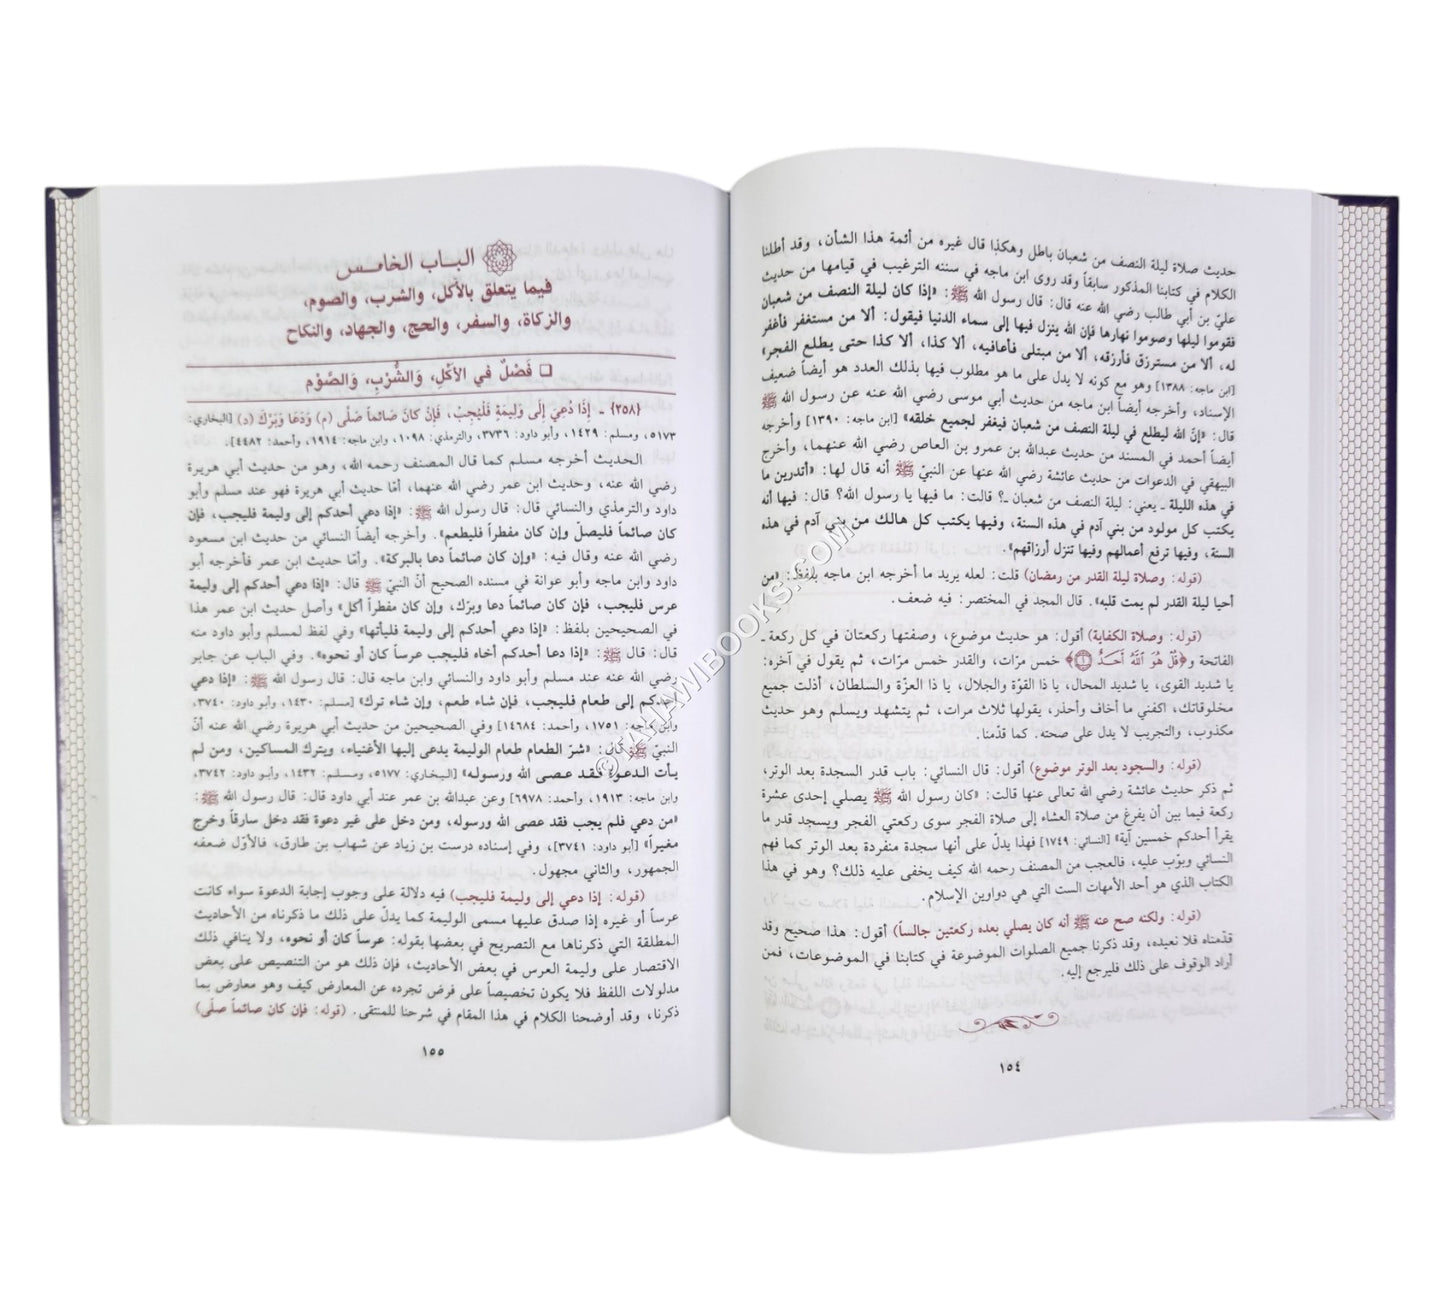 حديث صلاة ليلة النصف من شعبان باطل وهكذا قال غيره من أئمة هذا الشأن، وقد أطلنا
الكلام في كتابنا المذكور سابقاً وقد روى ابن ماجه في سننه الترغيب في قيامها من حديث
عليّ بن أبي طالب رضي الله عنه قال: قال رسول الله ﷺ: «إذا كان ليلة النصف من شعبان
فقوموا ليلها وصوموا نهارها فإن الله ينزل فيها إلى سماء الدنيا فيقول: ألا من مستغفر فأغفر
له، ألا من مسترزق فأرزقه، ألا من مبتلى فأعافيه، ألا كذا، ألا كذا حتى يطلع الفجر»
[ابن ماجه: ١٣٨٨] وهو مع كونه لا يدل على ما هو مطلوب فيها بذلك العدد هو أيضاً ضعيف
الإسناد، وأخرجه أيضاً ابن ماجه من حديث أبي موسى رضي الله عنه عن رسول الله ﷺ
قال: «إنّ الله ليطلع في ليلة النصف من شعبان فيغفر لجميع خلقه» [ابن ماجه: ١٣٩٠] وأخرجه
أيضاً أحمد في المسند من حديث عبدالله بن عمرو بن العاص رضي الله عنهما، وأخرج
البيهقي في الدعوات من حديث عائشة رضي الله عنها عن النبيّ ﷺ أنه قال لها: «أتدرين ما
في هذه الليلة ـ يعني: ليلة النصف من شعبان ـ؟ قالت: ما فيها يا رسول الله؟ قال: فيها أنه
يكتب كل مولود من بني آدم في هذه السنة، وفيها يكتب كل هالك من بني آدم في هذه
السنة، وفيها ترفع أعمالهم وفيها تنزل أرزاقهم».
(قوله: وصلاة ليلة القدر من رمضان) قلت: لعله يريد ما أخرجه ابن ماجه بلفظ: «من
أحيا ليلة القدر لم يمت قلبه». قال المجد في المختصر: فيه ضعف.
(قوله: وصلاة الكفاية) أقول: هو حديث موضوع، وصفتها ركعتان في كل ركعة ـ
الفاتحة و﴿قُلْ هُوَ ٱللَّهُ أَحَدٌ ۝١﴾ خمس مرّات، والقدر خمس مرّات، ثم يقول في آخره:
يا شديد القوى، يا شديد المحال، يا ذا القوّة والجلال، يا ذا العزّة والسلطان، أذلت جميع
مخلوقاتك، اكفني ما أخاف وأحذر، يقولها ثلاث مرات، ثم يتشهد ويسلم وهو حديث
مكذوب، والتجريب لا يدل على صحته. كما قدّمنا.
(قوله: والسجود بعد الوتر موضوع) أقول: قال النسائي: باب قدر السجدة بعد الوتر،
ثم ذكر حديث عائشة رضي الله تعالى عنها قالت: «كان رسول الله ﷺ يصلي إحدى عشرة
ركعة فيما بين أن يفرغ من صلاة العشاء إلى صلاة الفجر سوى ركعتي الفجر ويسجد قدر ما
يقرأ أحدكم خمسين آية» [النسائي: ١٧٤٩] فهذا يدلّ على أنها سجدة منفردة بعد الوتر كما فهم
النسائي وبوّب عليه، فالعجب من المصنف رحمه الله كيف يخفى عليه ذلك؟ وهو في هذا
الكتاب الذي هو أحد الأمهات الست التي هي دواوين الإسلام.
(قوله: ولكنه صح عنه ﷺ أنه كان يصلي بعده ركعتين جالساً) أقول: هذا صحيح وقد
قدّمناه فلا نعيده، وقد ذكرنا جميع الصلوات الموضوعة في كتابنا في الموضوعات، فمن
أراد الوقوف على ذلك فليرجع إليه.
١٥٤
الباب الخامس
فيما يتعلق بالأكل، والشرب، والصوم،
والزكاة، والسفر، والحج، والجهاد، والنكاح
❑ فَصْلٌ في الأَكْلِ، وَالشُّرْبِ، وَالصَّوْمِ
{٢٥٨} ـ إذَا دُعِيَ إلَى وَلِيمَةٍ فَلْيُجِبْ، فَإنْ كانَ صَائماً صَلَّى (م) وَدَعَا وَبَرَّكَ (د) [البخاري:
٥١٧٣، ومسلم: ١٤٢٩، وأبو داود: ٣٧٣٦، والترمذي: ١٠٩٨، وابن ماجه: ١٩١٤، وأحمد: ٤٤٨٢].
الحديث أخرجه مسلم كما قال المصنف رحمه الله، وهو من حديث أبي هريرة
رضي الله عنه، وحديث ابن عمر رضي الله عنهما، أمّا حديث أبي هريرة فهو عند مسلم وأبو
داود والترمذي والنسائي قال: قال رسول الله ﷺ: «إذا دعي أحدكم إلى وليمة فليجب، فإن
كان صائماً فليصلّ وإن كان مفطراً فليطعم». وأخرجه أيضاً النسائي من حديث ابن مسعود
رضي الله عنه وقال فيه: «وإن كان صائماً دعا بالبركة». وأمّا حديث ابن عمر فأخرجه أبو
داود وابن ماجه وأبو عوانة في مسنده الصحيح أنّ النبيّ ﷺ قال: «إذا دعي أحدكم إلى وليمة
عرس فليجب، فإن كان صائماً دعا وبرّك، وإن كان مفطراً أكل» وأصل حديث ابن عمر هذا
في الصحيحين بلفظ: «إذا دعي أحدكم إلى وليمة فليأتها» وفي لفظ لمسلم وأبو داود منه
قال: قال ﷺ: «إذا دعا أحدكم أخاه فليجب عرساً كان أو نحوه». وفي الباب عن جابر
رضي الله عنه عند مسلم وأبو داود والنسائي وابن ماجه قال: قال رسول الله ﷺ: «إذا دعي
أحدكم إلى طعام فليجب، فإن شاء طعم، وإن شاء ترك» [مسلم: ١٤٣٠، وأبو داود: ٣٧٤٠،
وابن ماجه: ١٧٥١، وأحمد: ١٤٦٨٤] وفي الصحيحين من حديث أبي هريرة رضي الله عنه أنّ
النبيّ ﷺ قال: «شرّ الطعام طعام الوليمة يدعى إليها الأغنياء، ويترك المساكين، ومن لم
يأت الدعوة فقد عصى الله ورسوله» [البخاري: ٥١٧٧، ومسلم: ١٤٣٢، وأبو داود: ٣٧٤٢،
وابن ماجه: ١٩١٣، وأحمد: ٦٩٧٨] وعن عبدالله بن عمر عند أبي داود قال: قال رسول الله ﷺ:
«من دعي فلم يجب فقد عصى الله ورسوله، ومن دخل على غير دعوة فقد دخل سارقاً وخرج
مغيراً» [أبو داود: ٣٧٤١]، وفي إسناده درست بن زياد عن شهاب بن طارق، فالأوّل ضعفه
الجمهور، والثاني مجهول.
(قوله: إذا دعي إلى وليمة فليجب) فيه دلالة على وجوب إجابة الدعوة سواء كانت
عرساً أو غيره إذا صدق عليها مسمى الوليمة كما يدلّ على ذلك ما ذكرناه من الأحاديث
المطلقة التي ذكرناها مع التصريح في بعضها بقوله: عرساً كان أو نحوه، ولا ينافي ذلك
الاقتصار على وليمة العرس في بعض الأحاديث، فإن ذلك هو من التنصيص على بعض
مدلولات اللفظ فلا يكون تخصيصاً على فرض تجرده عن المعارض كيف وهو معارض بما
ذكرنا، وقد أوضحنا الكلام في هذا المقام في شرحنا للمنتقى. (قوله: فإن كان صائماً صلّى)
١٥٥
©TAHAWIBOOKS.COM